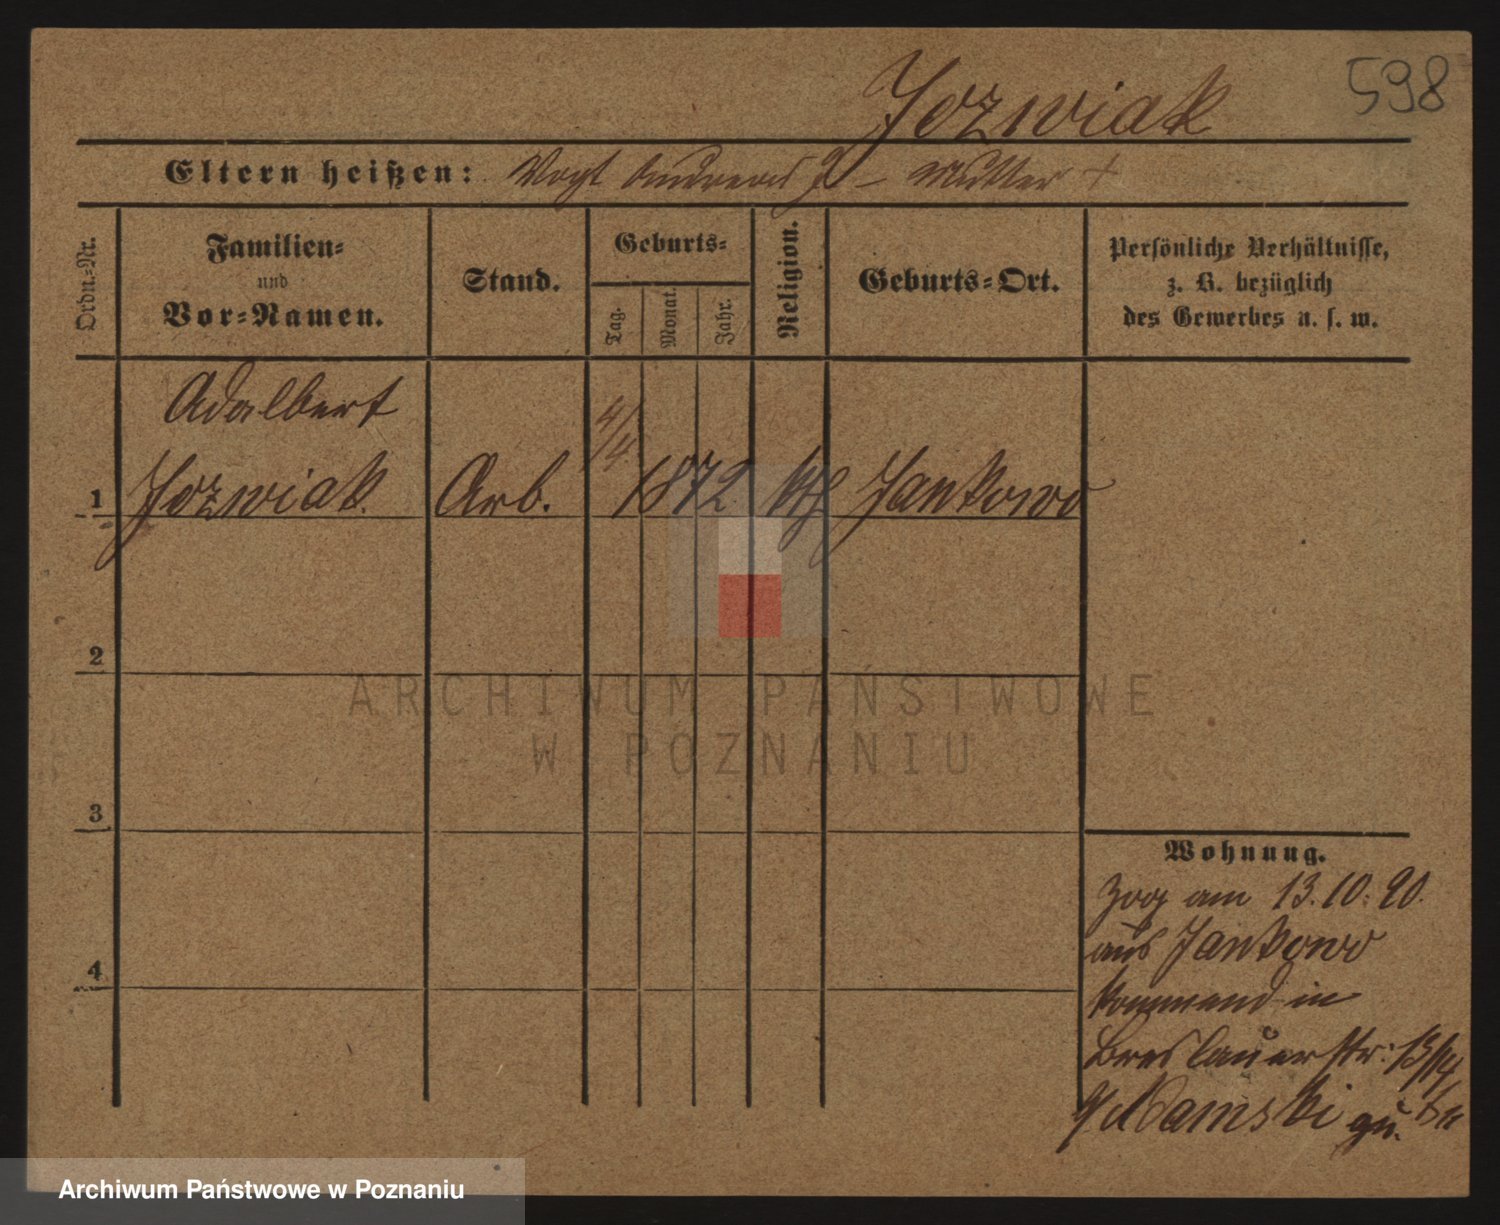 598
Jozwiak
Eltern heißen: Vogt Andreas J – Mutter +
Ordn.-Nr.
Familien-
und
Vor-Namen.
Stand.
Geburts-
Tag.
Monat.
Jahr.
Religion.
Geburts-Ort.
Persönliche Verhältnisse,
z. B. bezüglich
des Gewerbes u. s. w.
Adalbert
1 Jozwiak Arb. 4/4 1872 kth Jankowo
2
3
4
Wohnung.
Zog am 13.10.90.
aus Jankowo
kommend in
Breslauerstr: 13/14
Adamski
ARCHIWUM PAŃSTWOWE
W POZNANIU
Archiwum Państwowe w Poznaniu